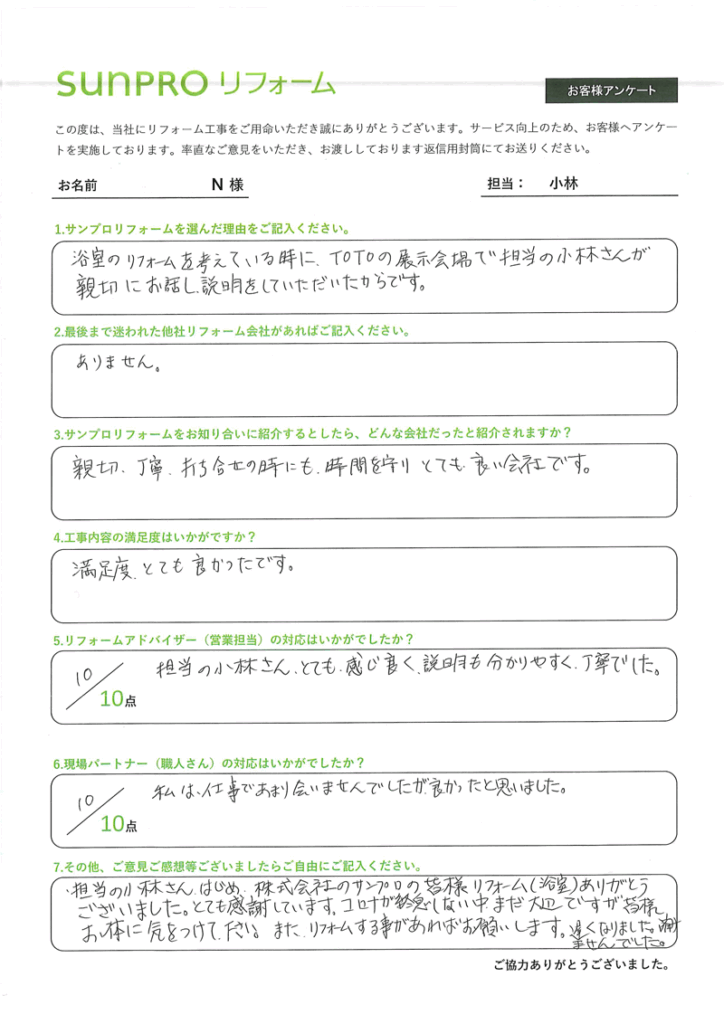 sunPRO リフォーム
お客様アンケート
この度は、当社にリフォーム工事をご用命いただき誠にありがとうございます。サービス向上のため、お客様へアンケー
トを実施しております。率直なご意見をいただき、お渡ししております返信用封筒にてお送りください。
お名前 N 様 担当： 小林
1.サンプロリフォームを選んだ理由をご記入ください。
浴室のリフォームを考えている時に、TOTOの展示会場で担当の小林さんが
親切にお話し、説明をしていただいたからです。
2.最後まで迷われた他社リフォーム会社があればご記入ください。
ありません。
3.サンプロリフォームをお知り合いに紹介するとしたら、どんな会社だったと紹介されますか？
親切、丁寧、打ち合せの時にも、時間を守り とても 良い会社です。
4.工事内容の満足度はいかがですか？
満足度、とても 良かったです。
5.リフォームアドバイザー（営業担当）の対応はいかがでしたか？
担当の小林さん、とても、感じ良く、説明も分かりやすく、丁寧でした。
10／10点
6.現場パートナー（職人さん）の対応はいかがでしたか？
私は、仕事であまり会いませんでしたが、良かったと思いました。
10／10点
7.その他、ご意見ご感想等ございましたらご自由にご記入ください。
・担当の小林さんはじめ、株式会社のサンプロの皆様リフォーム(浴室)ありがとう
ございました。とても感謝しています。コロナが終息しない中、まだ大辺ですが皆様
お体に気をつけて下さい。また、リフォームする事があればお願いします。遅くなりました。
ませんでした。
ご協力ありがとうございました。